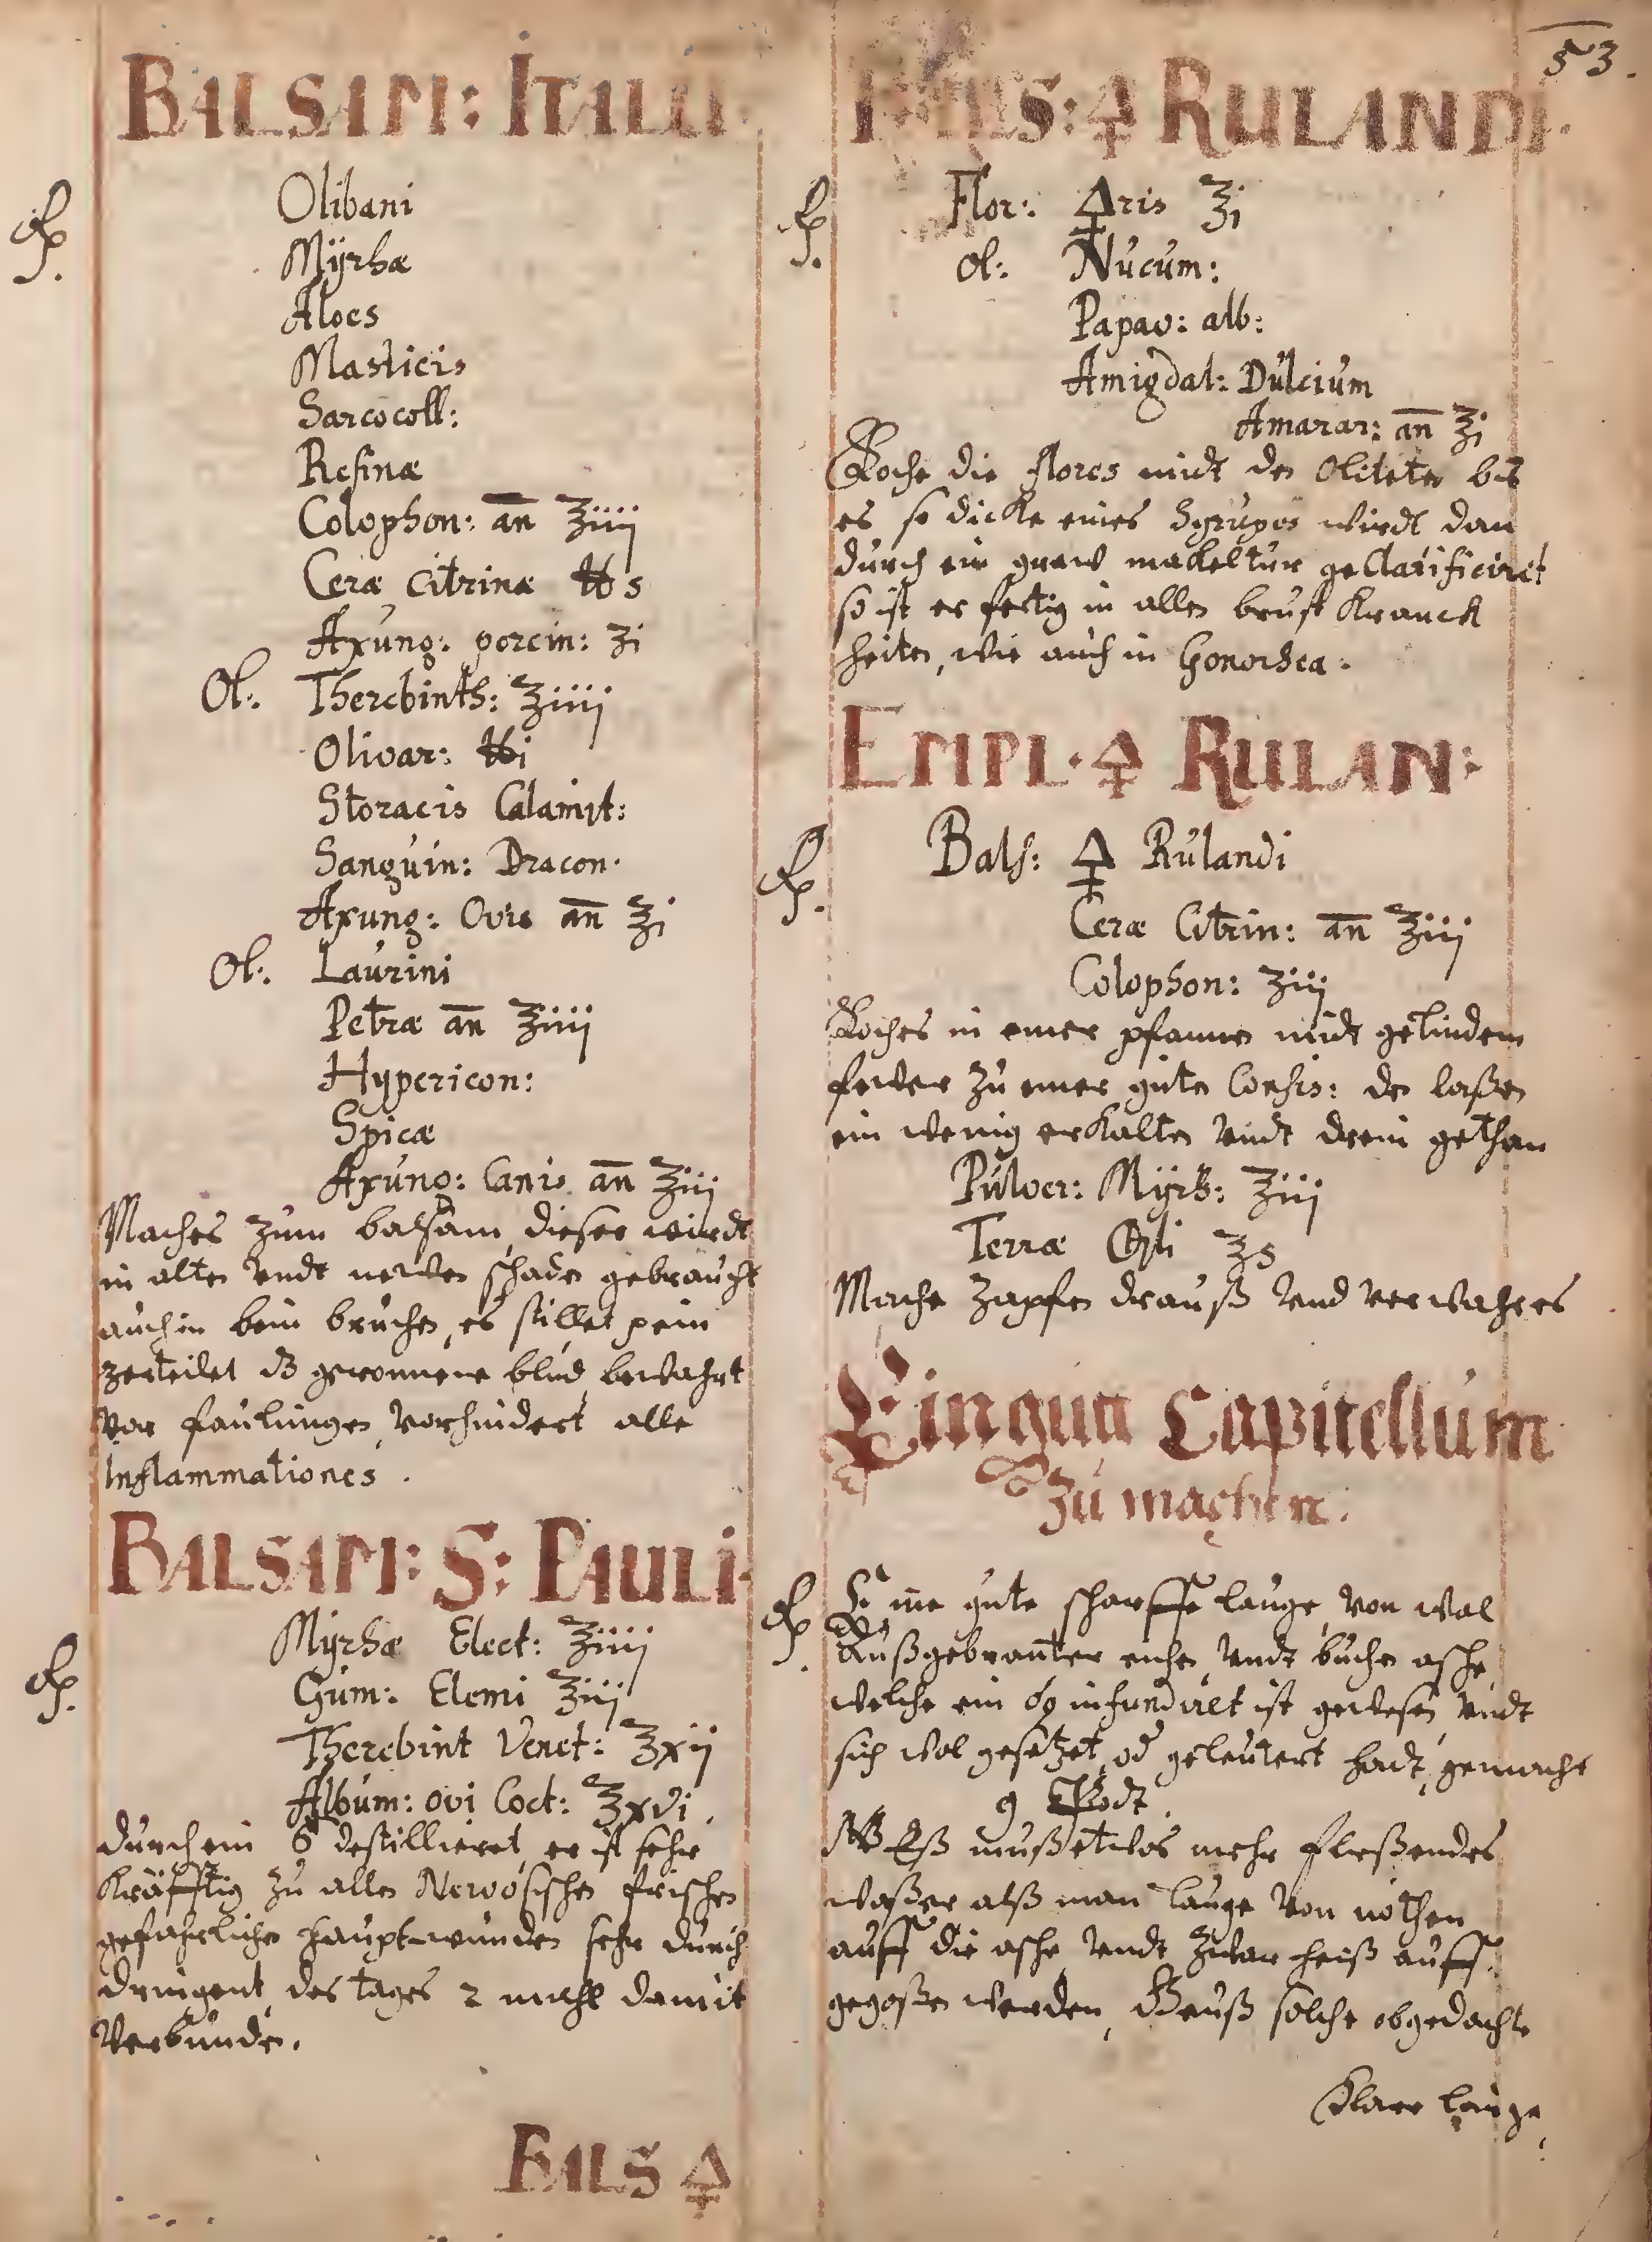 53.
BALSAM: ITALII.
Rp.
Olibani
Mÿrhæ
Aloes
Masticis
Sarcocoll:
Resinæ
Colophon: an̄ ʒiiij
Ceræ Citrinæ ℔ s
Axung: porcin: ʒi
Ol: Therebinth: ʒiiij
Olivar: ℔i
Storacis Calamit:
Sanguin: Dracon.
Axung: Ovis an̄ ʒi
Ol: Laurini
Petræ an̄ ʒiiij
Hypericon:
Spicæ
Axung: Canis an̄ ʒiij
Maches zum balsam, dieser wirdt
in alten undt newen schaden gebraucht
auch in bein bruchen, es stillet pein
zerteilet dz geronnene blud, bewahrt
vor faulungen, vorhindert alle
Inflammationes.
BALSAM: S: PAULI.
Rp.
Mÿrhæ Elect: ʒiiij
Gum: Elemi ʒiij
Therebint Venet: ʒxij
Album: ovi Coct: ʒxvi.
durch ein destillieret, er ist sehr
kräfftig zu allen Nervosischen frischen
gefahrlichen haupt-wunden sehr durch
dringent, des tages 2 mahl damit
verbunden.
BALS 🜍
BALS: 🜍 RULANDI.
Rp.
Flor: 🜍ris ʒi
ol: Nucum:
Papav: alb:
Amigdal: Dulcium
Amarar: an̄ ʒi
Koche die flores midt den Oliteten bis
es so dicke eines Syrupos wirdt dan
durch ein graw makeltur geClarificiret
so ist er fertig in allen brust Kranck
heiten, wie auch in Gonorhea.
EMPL. 🜍 RULAN:
Rp.
Bals: 🜍 Rulandi
Ceræ Citrin: an̄ ʒiij
Colophon: ʒiij
Koches in einer pfannen midt gelindem
fewer zu einer guten Consis: den laßen
ein wenig erkalten undt drein gethan
Pulver: Mÿrh: ʒiij
Terræ ʒs
Mache zapfen drauß und verwahr es
Lingua Capitellum
zu machen.
Rp
Eine gute scharffe lauge, von wal
außgebranter eichen undt buchen asche,
welche ein infundiret ist gewesen, undt
sich wol gesetzet, od geleutert hadt, gemacht
NB Eß muß etwas mehr fleßendes
waßer alß man lauge von nöthen
auff die asche, undt zwar heiß auff.
gegoßen werden, solche obgedachte
Klare lauge,